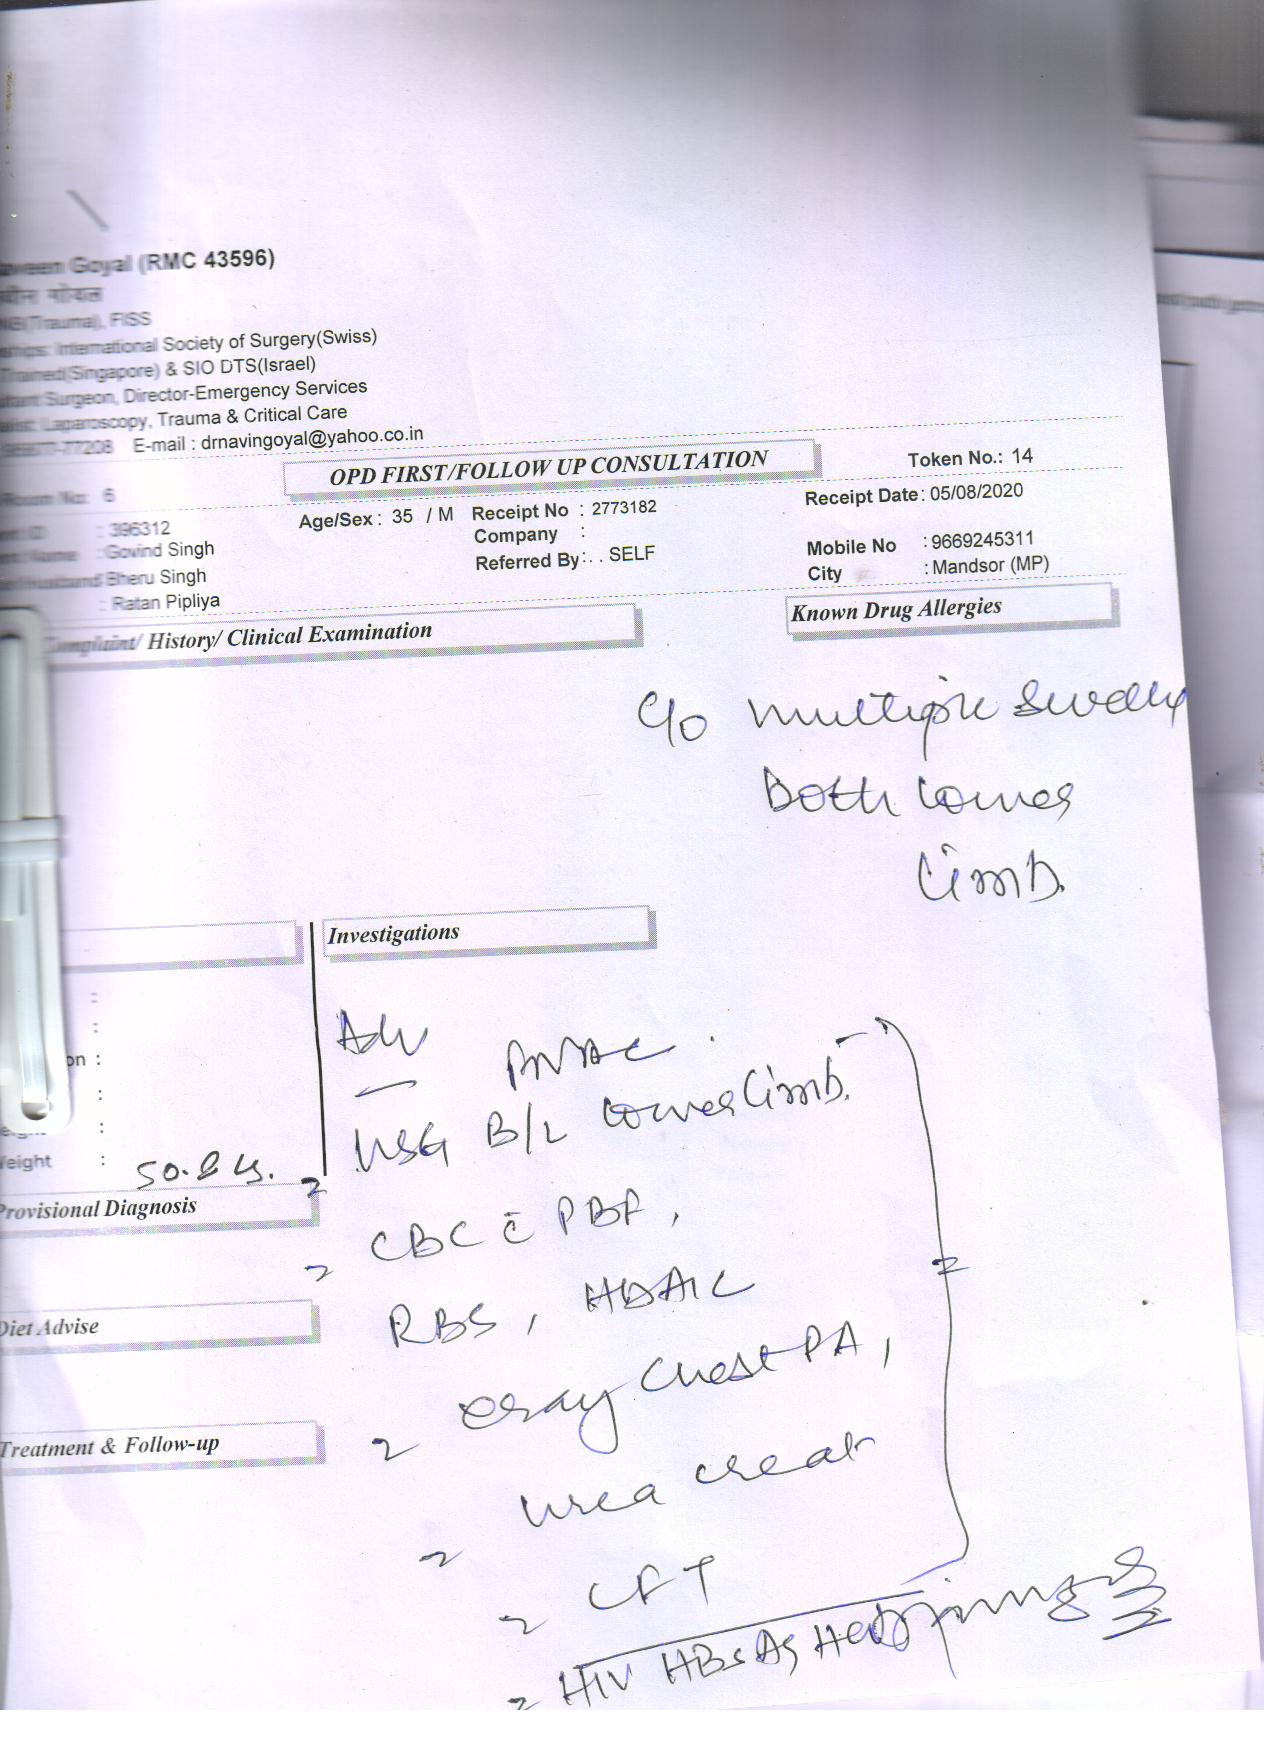 Goyal (RMC 43596)
गोयल
(Trauma), FISS
International Society of Surgery(Swiss)
Trained(Singapore) & SIO DTS(Israel)
Surgeon, Director-Emergency Services
Laparoscopy, Trauma & Critical Care
77208 E-mail : drnavingoyal@yahoo.co.in
OPD FIRST/FOLLOW UP CONSULTATION
Token No.: 14
Room No: 6
Age/Sex : 35 / M Receipt No : 2773182 Receipt Date: 05/08/2020
: 396312
Company :
Name : Govind Singh
Referred By : . . SELF
Mobile No : 9669245311
Husband Bheru Singh
City : Mandsor (MP)
: Ratan Pipliya
Complaint/ History/ Clinical Examination
Known Drug Allergies
C/o multiple swelly
Both lower
limb.
Investigations
:
:
on :
:
:
Weight : 50.8 kg.
Adv
USG B/L lower limb.
Provisional Diagnosis
CBC c̄ PBF,
RBS, HbA1C
Diet Advise
Xray Chest PA,
Treatment & Follow-up
urea creat
LFT
HIV HBsAg